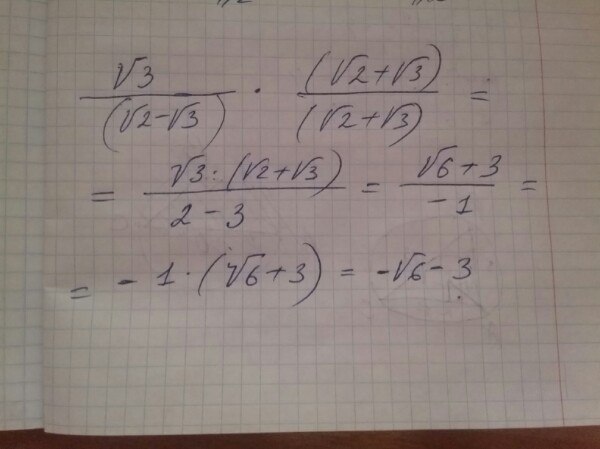 √3 / (√2-√3) · (√2+√3) / (√2+√3) =
= √3·(√2+√3) / 2-3 = √6+3 / -1 =
= -1·(√6+3) = -√6-3